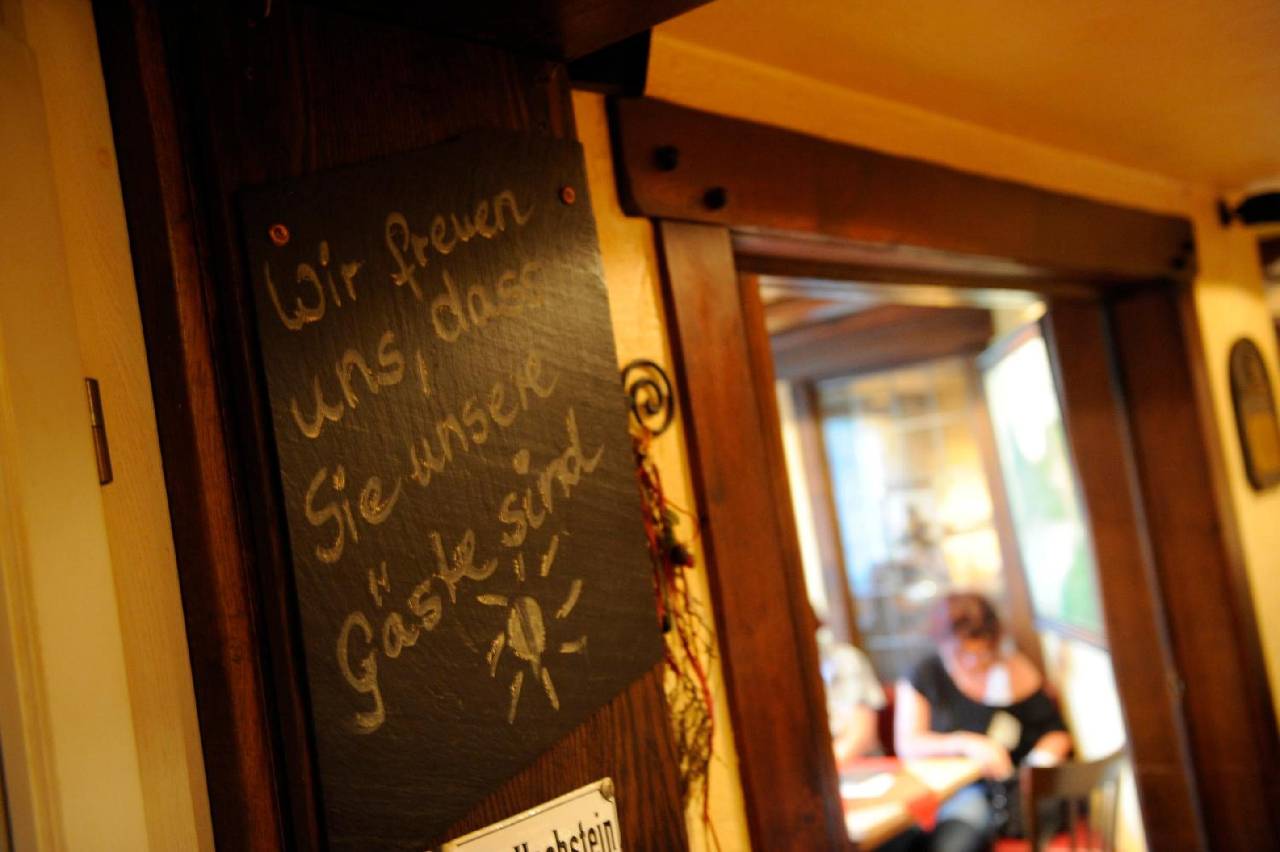 Wir freuen
uns, dass
Sie unsere
Gäste sind